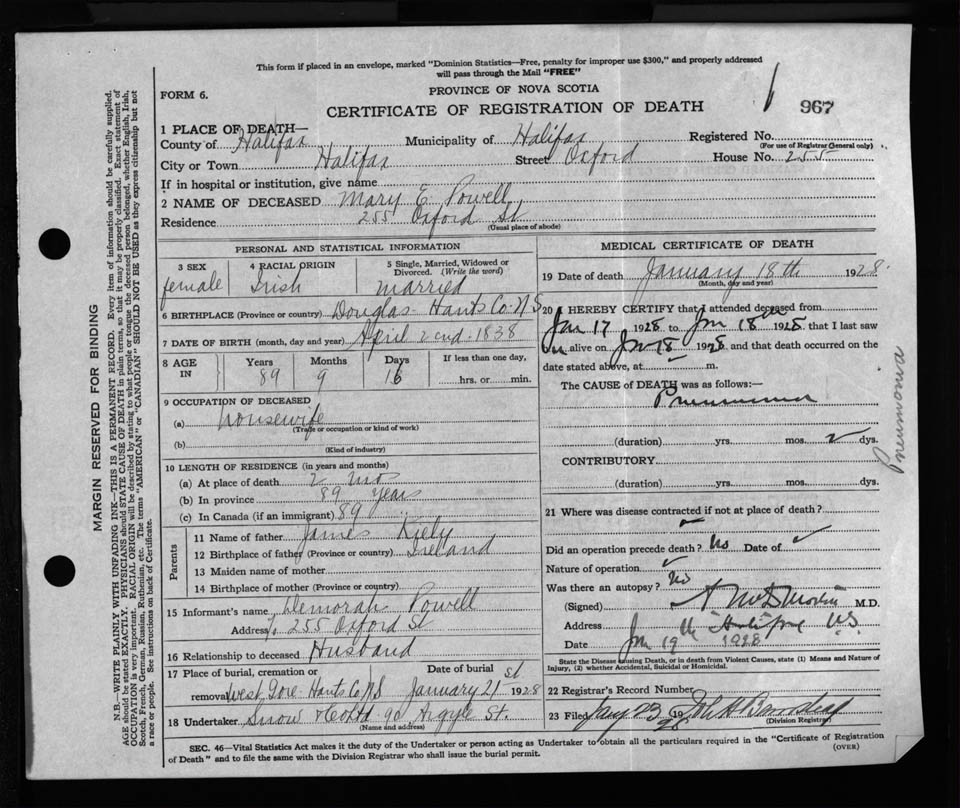 This form if placed in an envelope, marked "Dominion Statistics—Free, penalty for improper use $300," and properly addressed
will pass through the Mail "FREE"
PROVINCE OF NOVA SCOTIA
FORM 6.
CERTIFICATE OF REGISTRATION OF DEATH
967
1 PLACE OF DEATH—
County of Halifax Municipality of Halifax Registered No.
(For use of Registrar General only)
City or Town Halifax Street Oxford House No. 255
If in hospital or institution, give name
2 NAME OF DECEASED Mary E. Powell
Residence 255 Oxford St
(Usual place of abode)
PERSONAL AND STATISTICAL INFORMATION
3 SEX
female
4 RACIAL ORIGIN
Irish
5 Single, Married, Widowed or
Divorced. (Write the word)
married
6 BIRTHPLACE (Province or country) Douglas Hants Co. N S
7 DATE OF BIRTH (month, day and year) April 2cnd. 1838
8 AGE
IN
Years Months Days
89 9 16
If less than one day,
hrs. or min.
9 OCCUPATION OF DECEASED
(a) housewife
(Trade or occupation or kind of work)
(b)
(Kind of industry)
10 LENGTH OF RESIDENCE (in years and months)
(a) At place of death 2 mo
(b) In province 89 years
(c) In Canada (if an immigrant) 89
Parents
11 Name of father James Riely
12 Birthplace of father (Province or country) Ireland
13 Maiden name of mother
14 Birthplace of mother (Province or country)
15 Informant's name Demorah Powell
Address 255 Oxford St
16 Relationship to deceased Husband
17 Place of burial, cremation or Date of burial
removal West Gore Hants Co NS January 21st 1928
18 Undertaker Snow & Co Ltd 90 Argyle St.
(Name and address)
MEDICAL CERTIFICATE OF DEATH
19 Date of death January 18th 1928.
(Month, day and year)
20 I HEREBY CERTIFY that I attended deceased from
Jan 17 1928 to Jan 18th 1928 that I last saw
alive on Jan 18 1928 and that death occurred on the
date stated above, at m.
The CAUSE of DEATH was as follows:—
Pneumonia
(duration) yrs. mos. 2 dys.
CONTRIBUTORY
(duration) yrs. mos. dys.
21 Where was disease contracted if not at place of death?
Did an operation precede death? No Date of
Nature of operation
Was there an autopsy? No
(Signed) M.D.
Address Halifax N.S.
Date Jan 19th 1928
State the Disease causing Death, or in death from Violent Causes, state (1) Means and Nature of
Injury, (2) whether Accidental, Suicidal or Homicidal.
22 Registrar's Record Number
23 Filed Jany 23 1928
(Division Registrar)
Pneumonia
SEC. 46—Vital Statistics Act makes it the duty of the Undertaker or person acting as Undertaker to obtain all the particulars required in the "Certificate of Registration
of Death" and to file the same with the Division Registrar who shall issue the burial permit.
(OVER)
MARGIN RESERVED FOR BINDING
N.B.—WRITE PLAINLY WITH UNFADING INK—THIS IS A PERMANENT RECORD. Every item of information should be carefully supplied.
AGE should be stated EXACTLY. PHYSICIANS should STATE CAUSE OF DEATH in plain terms, so that it may be properly classified. Exact statement of
OCCUPATION is very important. RACIAL ORIGIN will be described by stating to what people or tongue the deceased person belonged, whether English, Irish,
Scotch, French, German, Russian, Ruthenian, etc. The terms "AMERICAN" or "CANADIAN" SHOULD NOT BE USED as they express citizenship but not
a race or people. See instructions on back of Certificate.